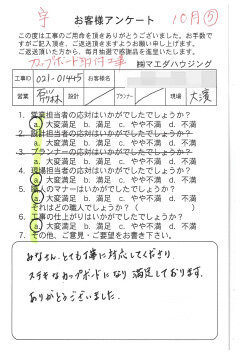 字 お客様アンケート 10月⑤
この度は工事のご用命を頂きありがとうございました。お手数です
がご記入頂き、ご返送頂きますようお願い申し上げます。
ご返送頂いた方から、毎月抽選で感謝品を進呈いたします。
カップボード取付工事 ㈱マエダハウジング
工事ID 021-01445 お客様名
営業 有林 設計 プランナー 現場 大濱
1. 営業担当者の応対はいかがでしたでしょうか?
a. 大変満足 b. 満足 c. やや不満 d. 不満
2. 設計担当者の応対はいかがでしたでしょうか?
a. 大変満足 b. 満足 c. やや不満 d. 不満
3. プランナーの応対はいかがでしたでしょうか?
a. 大変満足 b. 満足 c. やや不満 d. 不満
4. 現場担当者の応対はいかがでしたでしょうか?
a. 大変満足 b. 満足 c. やや不満 d. 不満
5. 職人のマナーはいかがでしたでしょうか?
a. 大変満足 b. 満足 c. やや不満 d. 不満
それはどの職人でしょうか?( )
6. 工事の仕上がりはいかがでしたでしょうか?
a. 大変満足 b. 満足 c. やや不満 d. 不満
7. その他、ご意見・ご要望をお書き下さい。
みなさん、とても丁寧に対応してくださり
ステキなカップボードになり満足しております。
ありがとうございました。